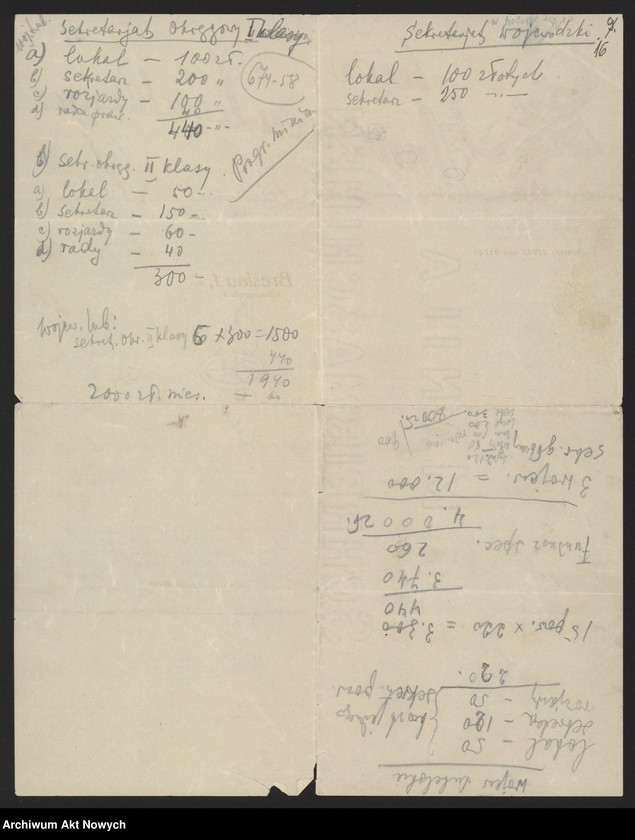 Sekretarjat okręgowy I klasy
a) lokal - 100 zł.
b) sekretarz - 200 "
c) rozjazdy - 100 "
d) rada praw. 40
440 -"-
674-58
Progr. minim
b) Sekr. okręg. II klasy
a) lokal - 50 -
b) sekretarz - 150 -
c) rozjazdy - 60 -
d) rady - 40
300 =
Wojew. lub:
sekret. okr. II klasy 5 × 300 = 1500
440
1940
2000 zł. mies. + 60
Sekretarjat Wojewódzki
16
lokal - 100 złotych
sekretarz - 250 -"-
Breslau 1,
Wojew. lubelskie
lokal - 50
sekretarz - 120
rozjazdy - 50
220.
sekret. pow.
15 pow. × 220 = 3.300
440
3.740
Fundusz spec. 260
4.000 zł.
3 wojew. = 12.000
Sekr. główny
900
Archiwum Akt Nowych